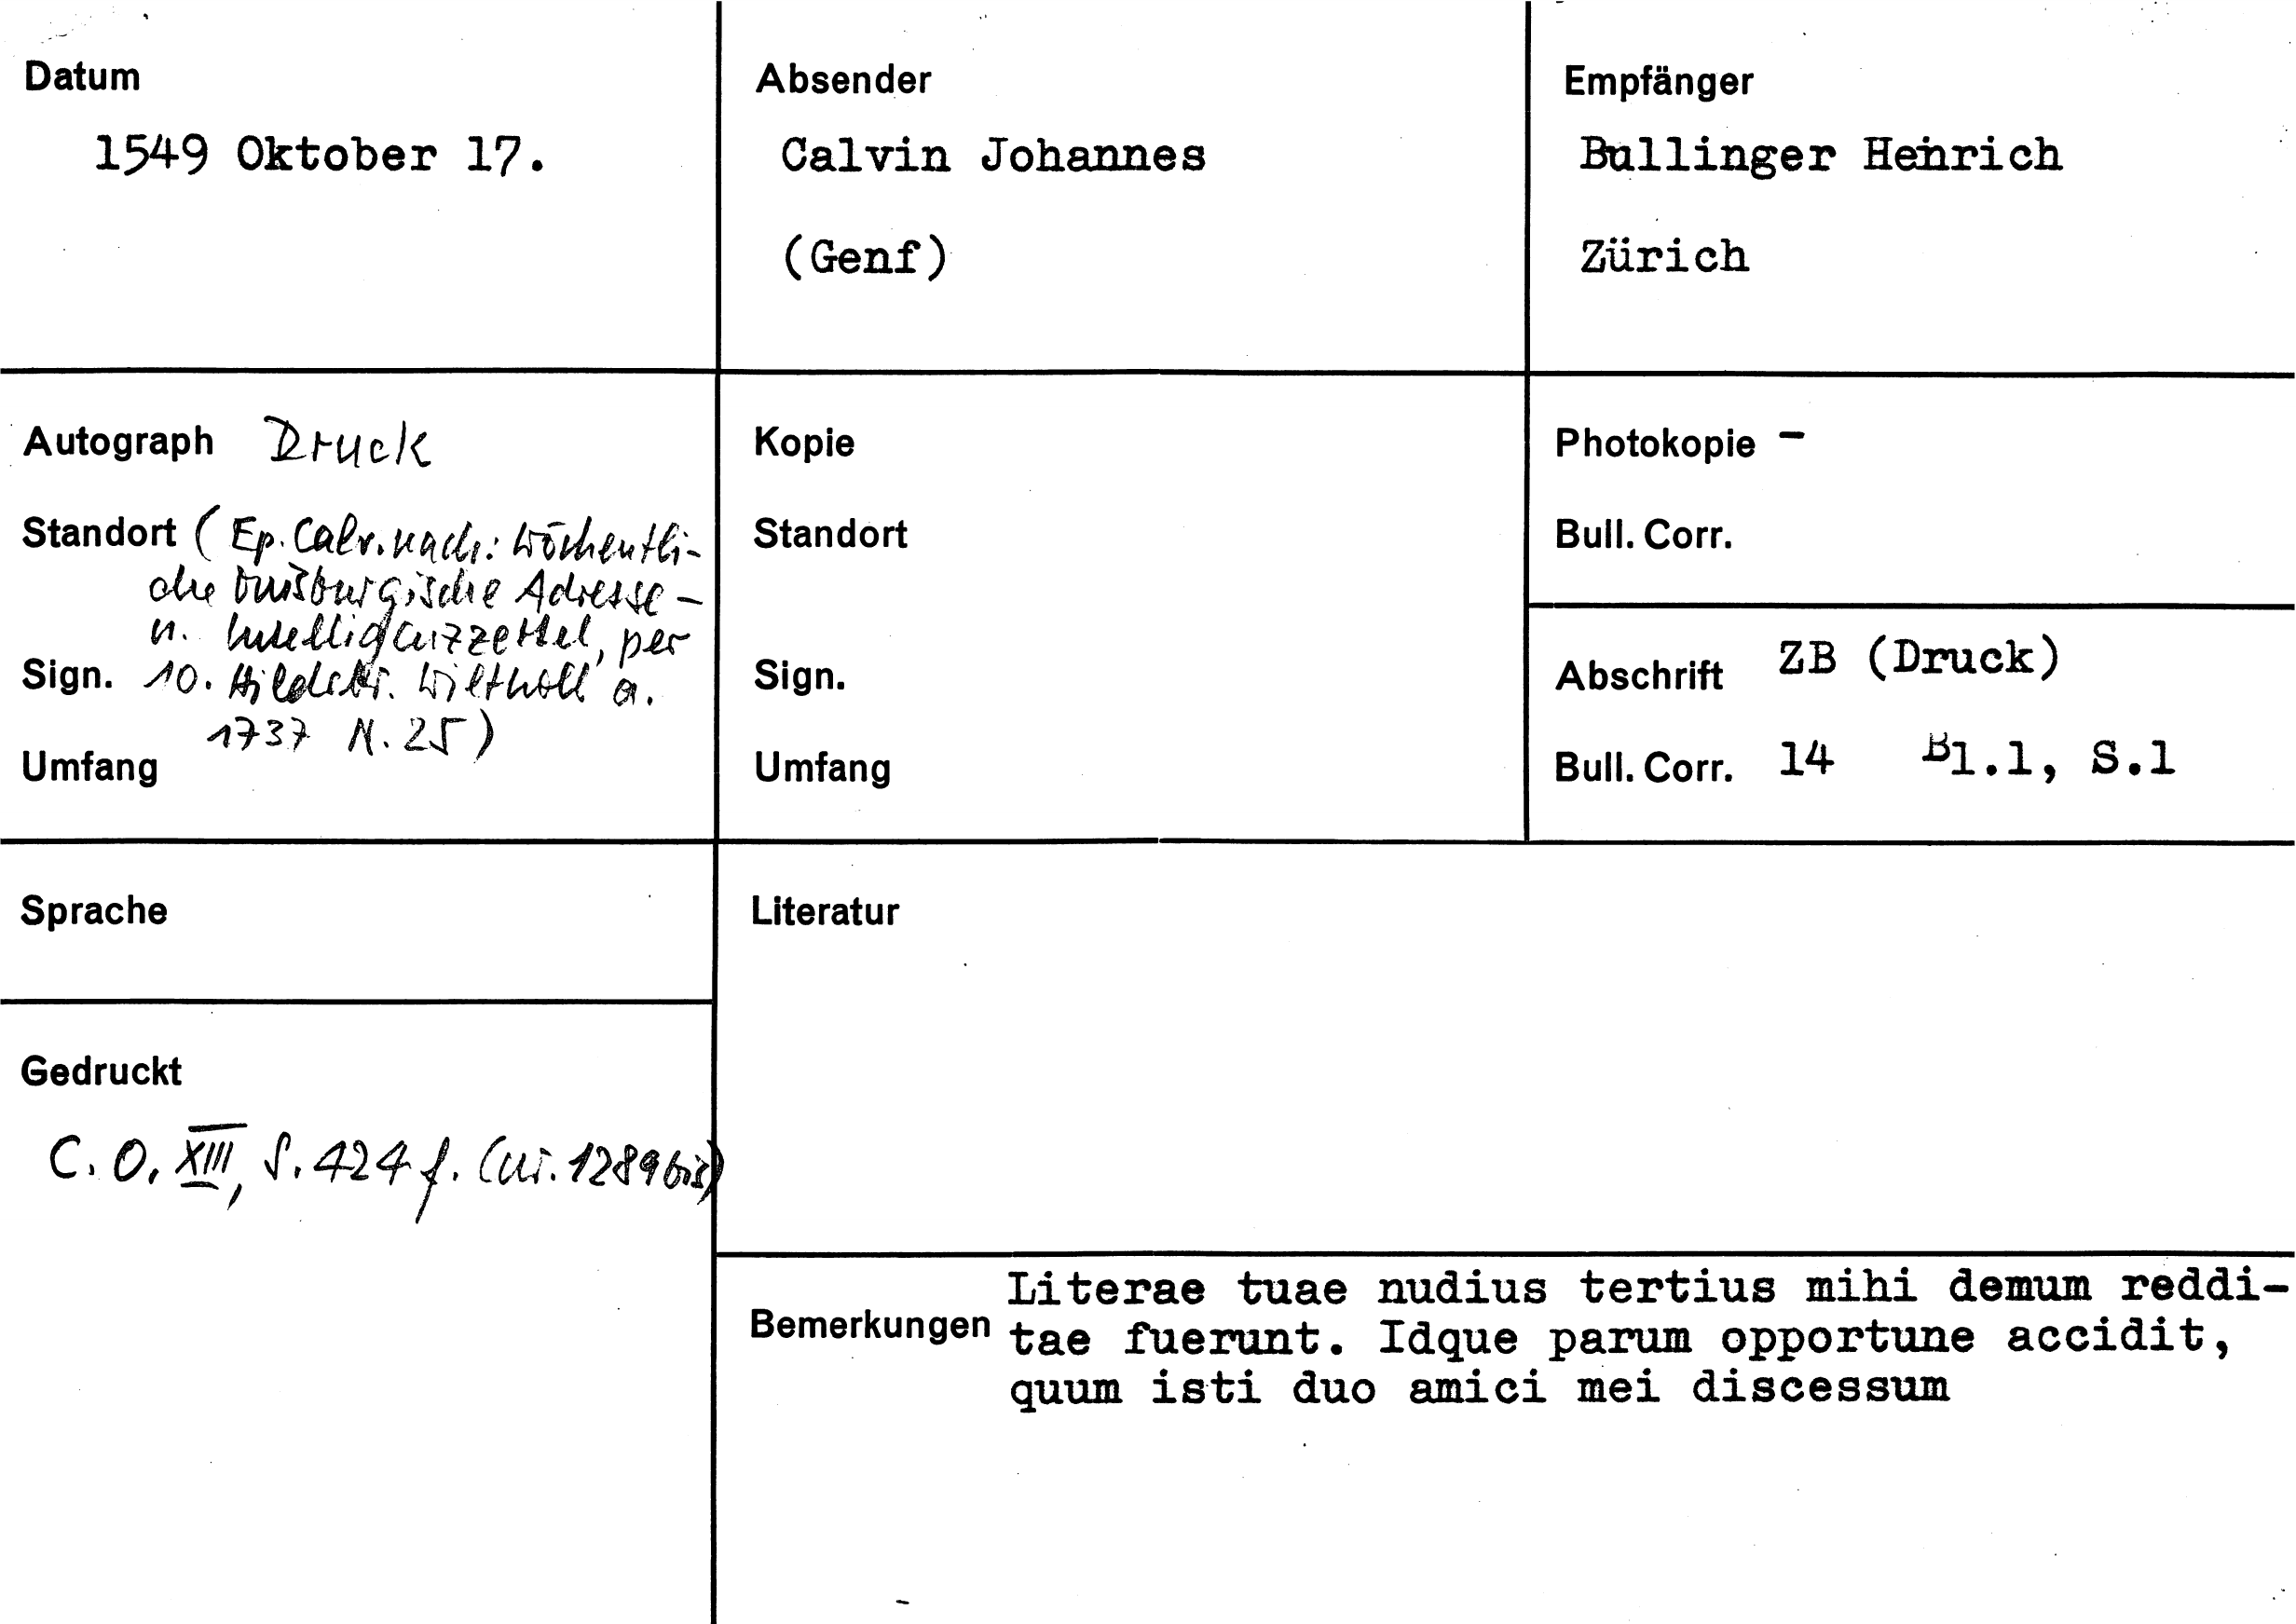 Datum
1549 Oktober 17.
Absender
Calvin Johannes
(Genf)
Empfänger
Bullinger Heinrich
Zürich
Autograph Druck
Standort (Ep. Calv. nach: Wöchentli-
che Duisburgische Adresse-
u. Intelligenzzettel, per
Sign. 10. Hildebr. Withoff a.
1737 N. 25)
Umfang
Kopie
Standort
Sign.
Umfang
Photokopie -
Bull. Corr.
Abschrift ZB (Druck)
Bull. Corr. 14 Bl.1, S.1
Sprache
Gedruckt
C. O. XIII, S. 424 f. (Nr. 1289bis)
Literatur
Bemerkungen
Literae tuae nudius tertius mihi demum reddi-
tae fuerunt. Idque parum opportune accidit,
quum isti duo amici mei discessum